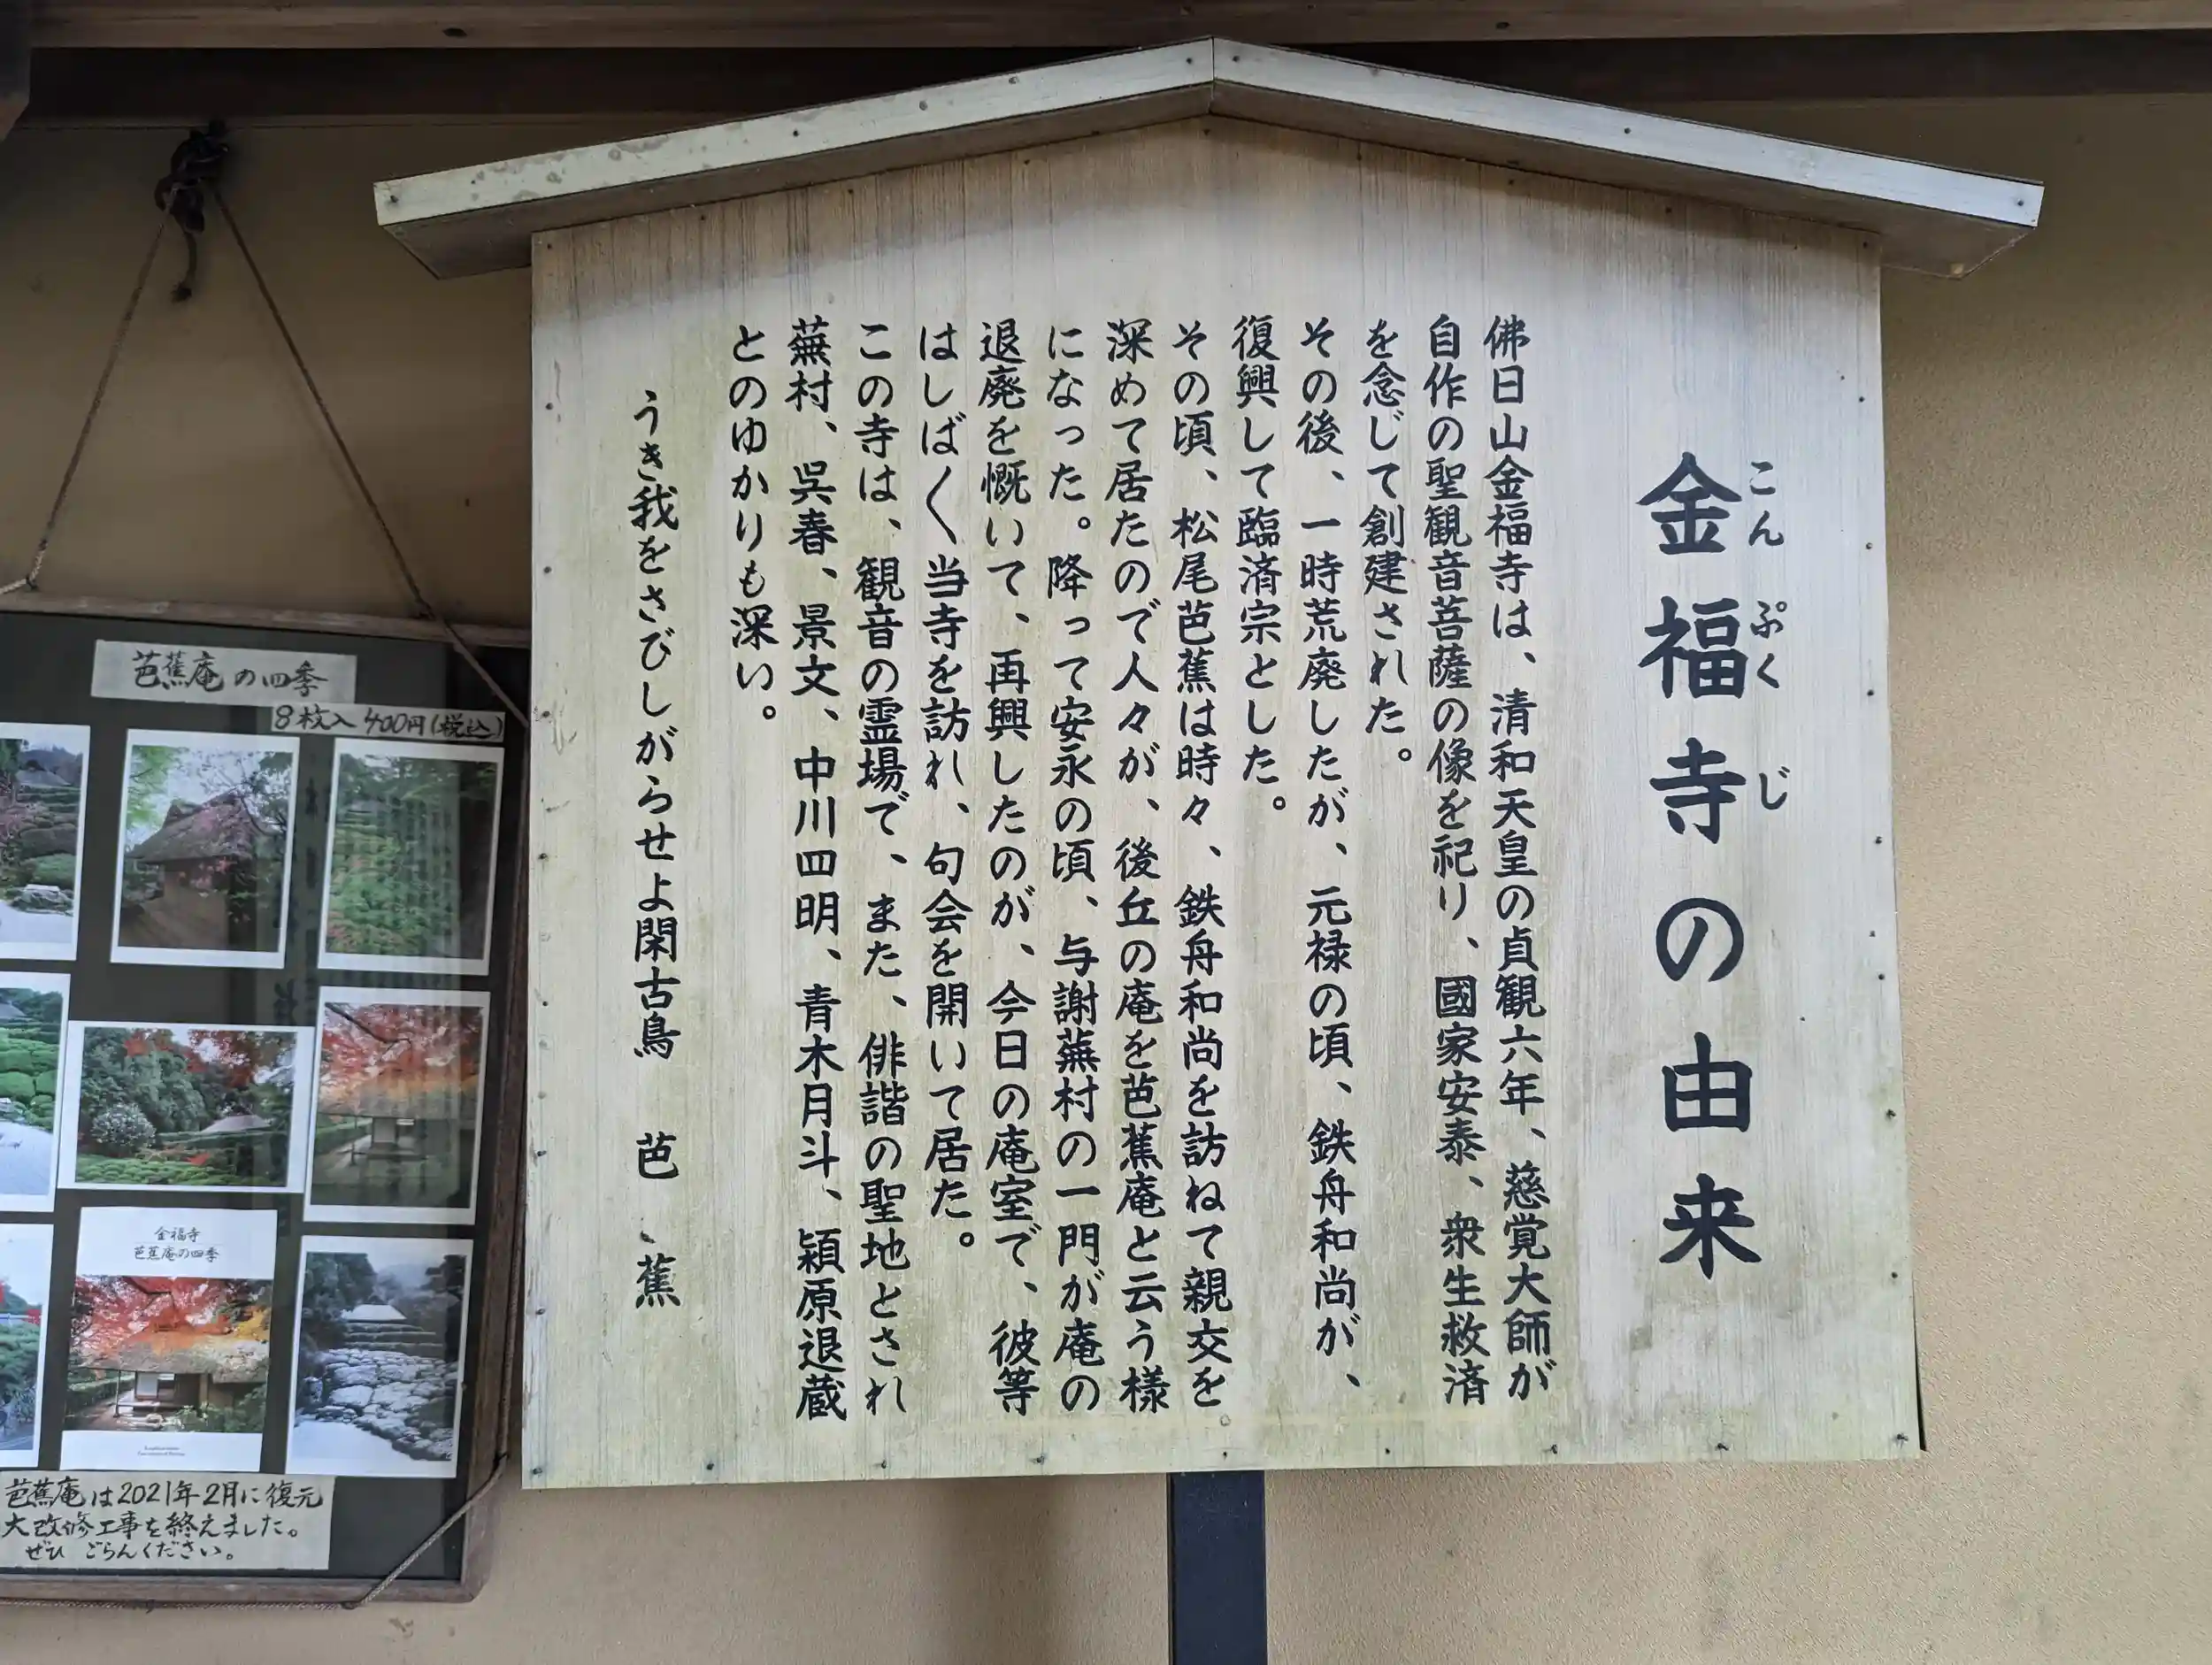 金福寺の由来
こんぷくじ
佛日山金福寺は、清和天皇の貞観六年、慈覚大師が
自作の聖観音菩薩の像を祀り、國家安泰、衆生救済
を念じて創建された。
その後、一時荒廃したが、元禄の頃、鉄舟和尚が、
復興して臨済宗とした。
その頃、松尾芭蕉は時々、鉄舟和尚を訪ねて親交を
深めて居たので人々が、後丘の庵を芭蕉庵と云う様
になった。降って安永の頃、与謝蕪村の一門が庵の
退廃を慨いて、再興したのが、今日の庵室で、彼等
はしば〱当寺を訪れ、句会を開いて居た。
この寺は、観音の霊場で、また、俳諧の聖地とされ
蕪村、呉春、景文、中川四明、青木月斗、潁原退蔵
とのゆかりも深い。
うき我をさびしがらせよ閑古鳥 芭蕉
芭蕉庵の四季
8枚入 400円(税込)
金福寺
芭蕉庵の四季
芭蕉庵は2021年2月に復元
大改修工事を終えました。
ぜひ ごらんください。